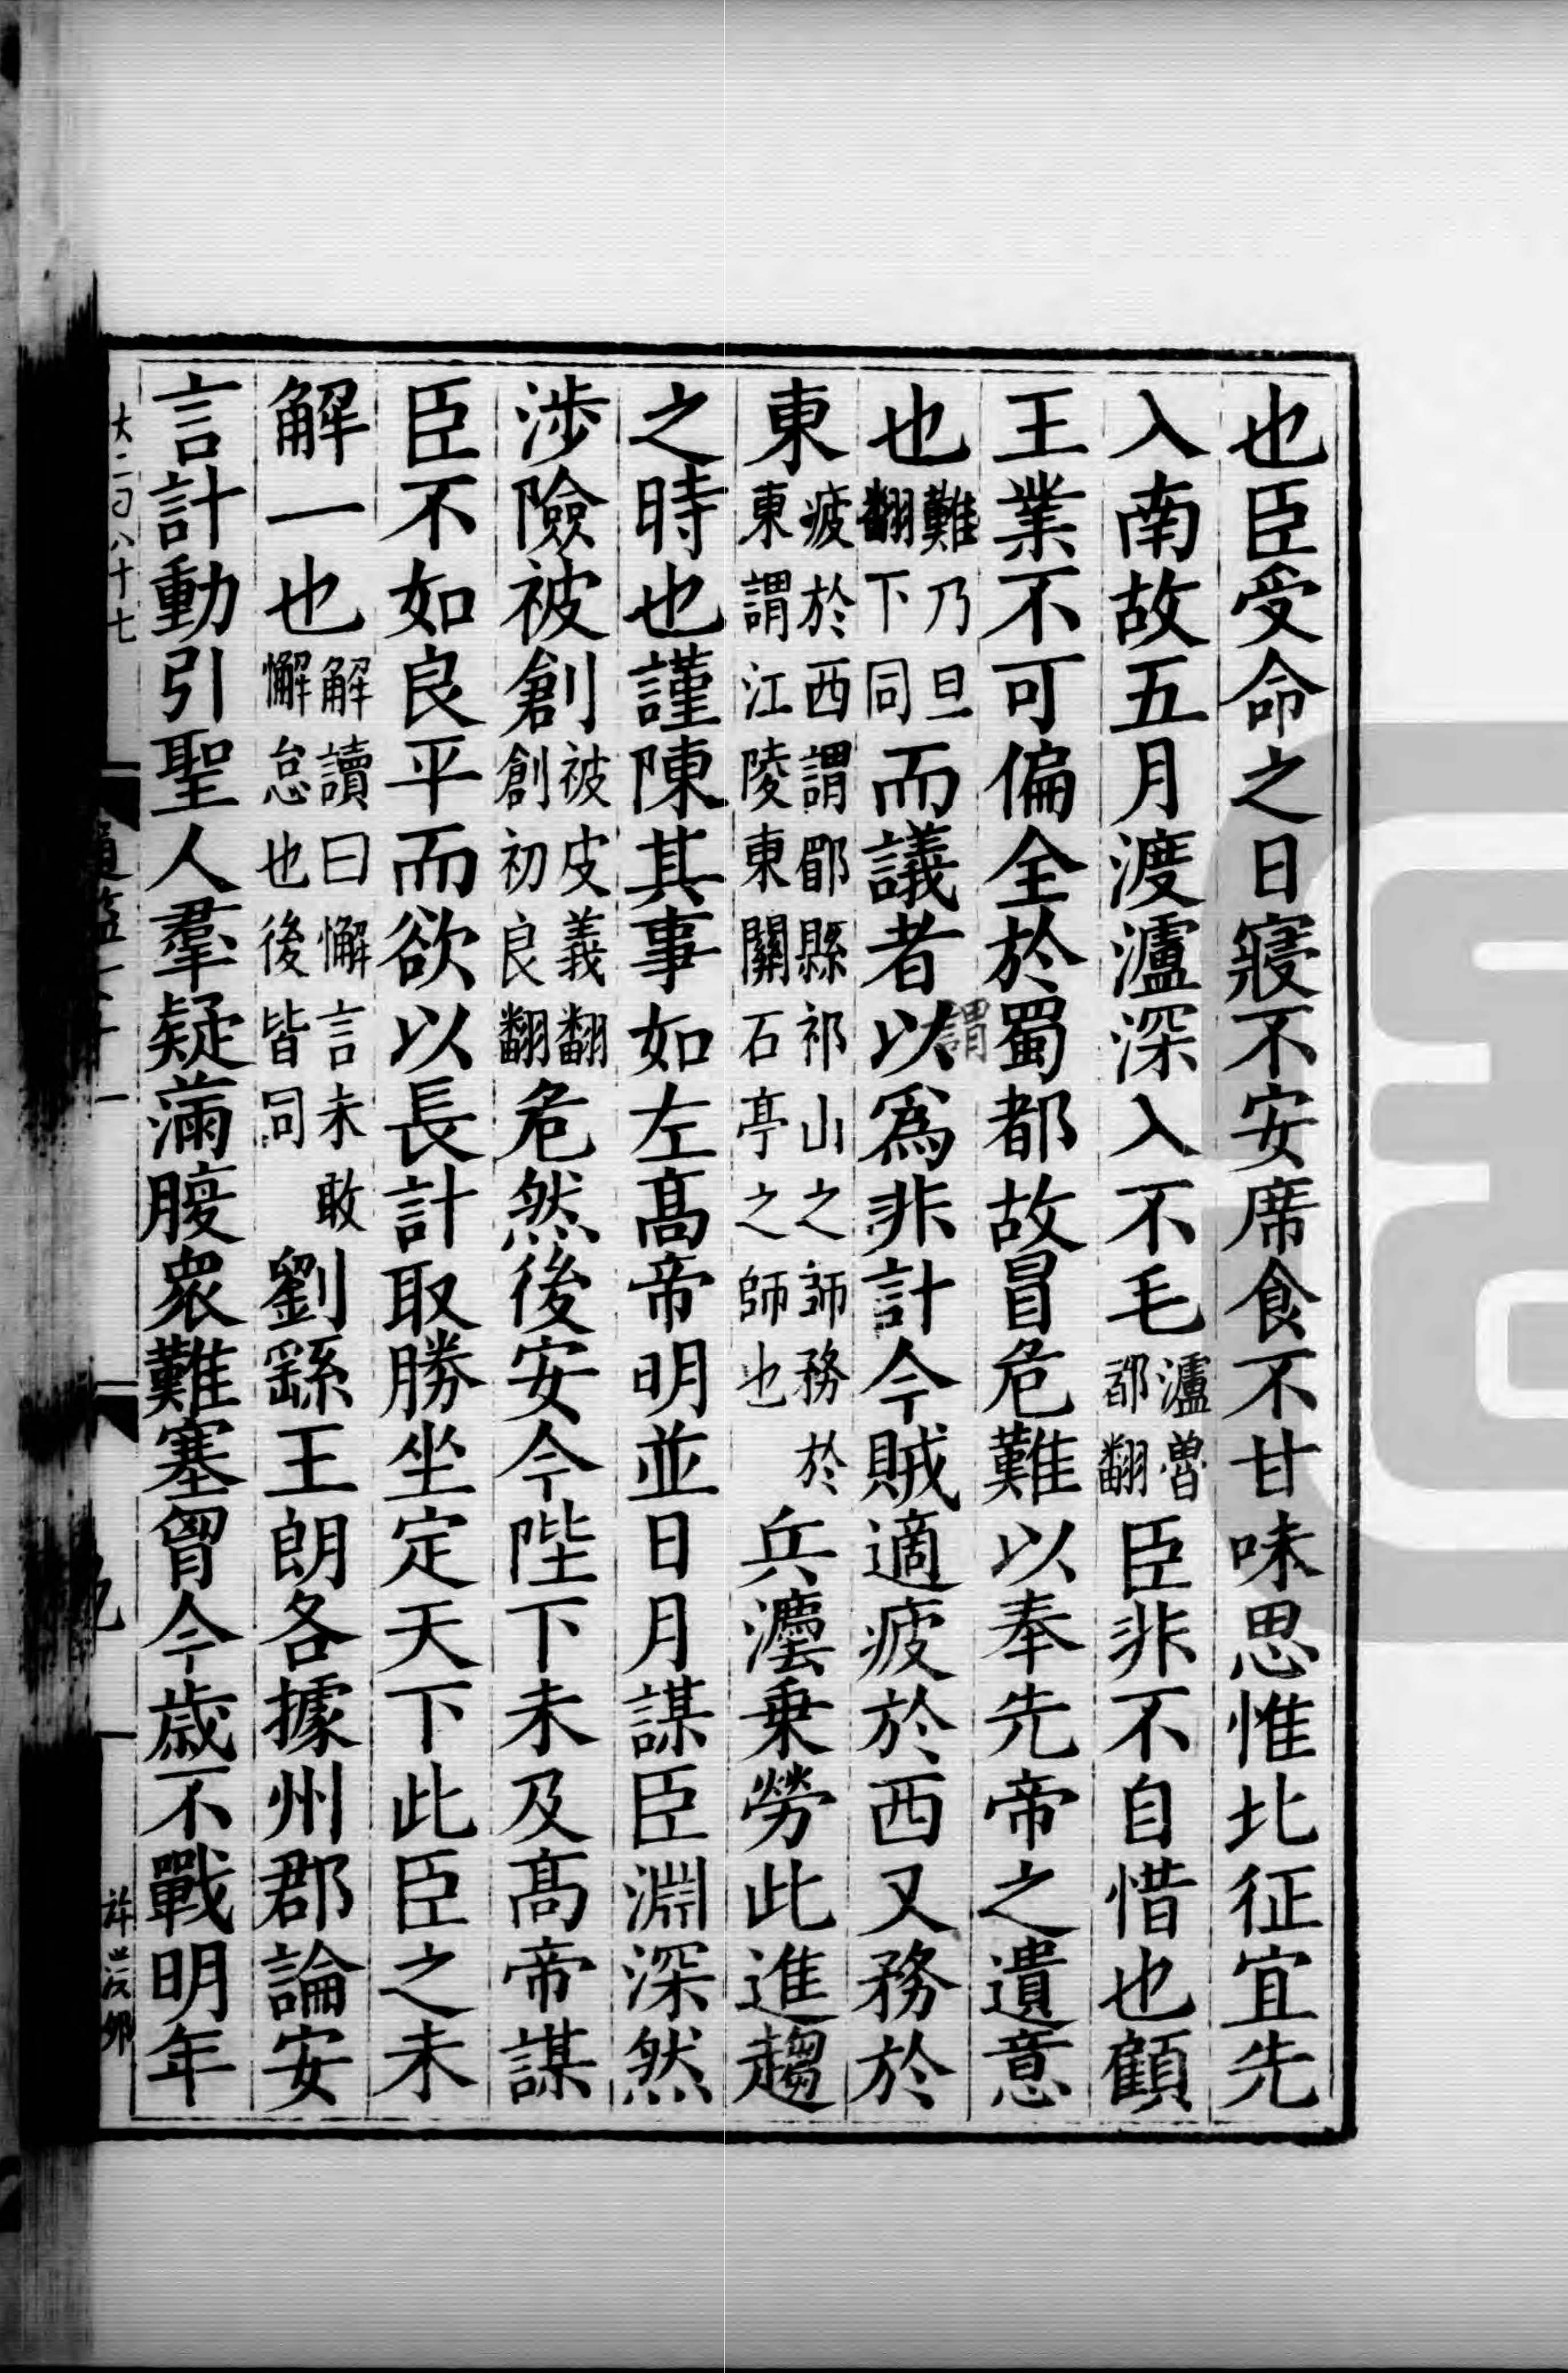 也臣受命之日寢不安席食不甘味思惟北征宜先
入南故五月渡瀘深入不毛瀘魯都翻臣非不自惜也顧
王業不可偏全於蜀都故冒危難以奉先帝之遺意
也難乃旦翻下同而議者以謂爲非計今賊適疲於西又務於
東疲於西謂郿縣祁山之師務於東謂江陵東關石亭之師也兵灋乗勞此進趨
之時也謹陳其事如左髙帝明並日月謀臣淵深然
渉險被創被皮義翻創初良翻危然後安今陛下未及髙帝謀
臣不如良平而欲以長計取勝坐定天下此臣之未
解一也解讀曰懈言未敢懈怠也後皆同劉繇王朗各據州郡論安
言計動引聖人羣疑滿腹衆難塞胷今歳不戰明年
大二百八十七